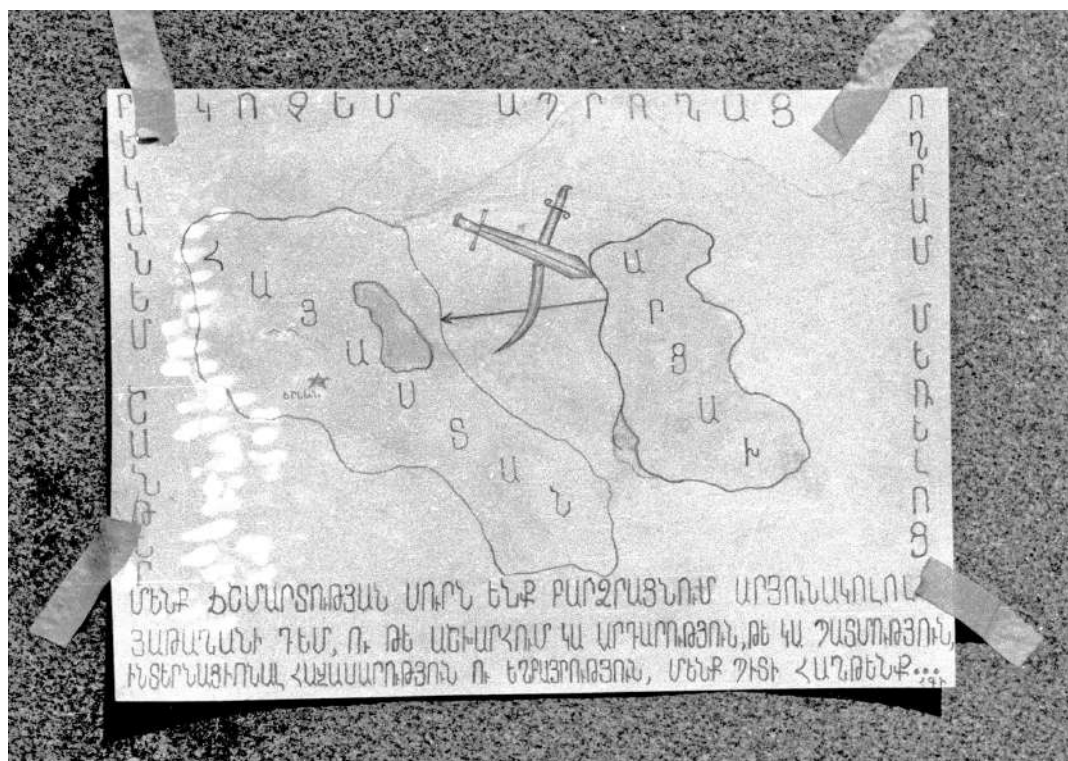 ԿՈՉԵՄ ԱՊՐՈՂՆԱՑ
ՈՂԲԱՄ ՄԵՌԵԼՈՑ
ԲԵԿԱՆԵՄ ՇԱՆԹԵՐ
ՀԱՅԱՍՏԱՆ
ԵՐԵՎԱՆ
ԱՐՑԱԽ
ՄԵՆՔ ՃՇՄԱՐՏՈՒԹՅԱՆ ՍՈՒՐՆ ԵՆՔ ԲԱՐՁՐԱՑՆՈՒՄ ԱՐՅՈՒՆԱԿՈԼՈԼ
ՅԱԹԱՂԱՆԻ ԴԵՄ, ՈՒ ԹԵ ԱՇԽԱՐՀՈՒՄ ԿԱ ԱՐԴԱՐՈՒԹՅՈՒՆ, ԹԵ ԿԱ ՊԱՏՄՈՒԹՅՈՒՆ,
ԻՆՏԵՐՆԱՑԻՈՆԱԼ ՀԱՎԱՍԱՐՈՒԹՅՈՒՆ ՈՒ ԵՂԲԱՅՐՈՒԹՅՈՒՆ, ՄԵՆՔ ՊԻՏԻ ՀԱՂԹԵՆՔ...